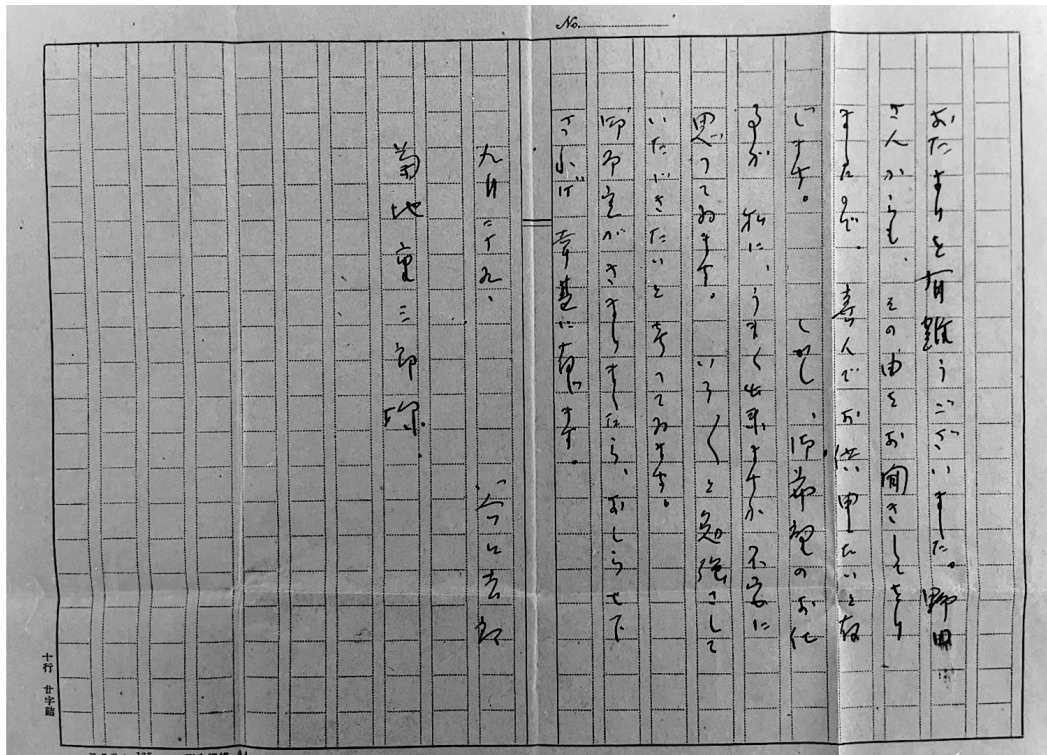 No.
おたよりを有難うございました。野田
さんからも その由をお聞きしてをり
ましたが。喜んでお供申したいと存
じます。 しかし、御希望のお仕
事が 私に、うまく出来ますか 不安に
思つてゐます。 いろ〱と勉強さして
いただきたいと考へてゐます。
御都合がきまりましたら、おしらせ下
さらば 幸甚に存じます。
九月二十九、
菊地重三郎様
十行 廿字詰